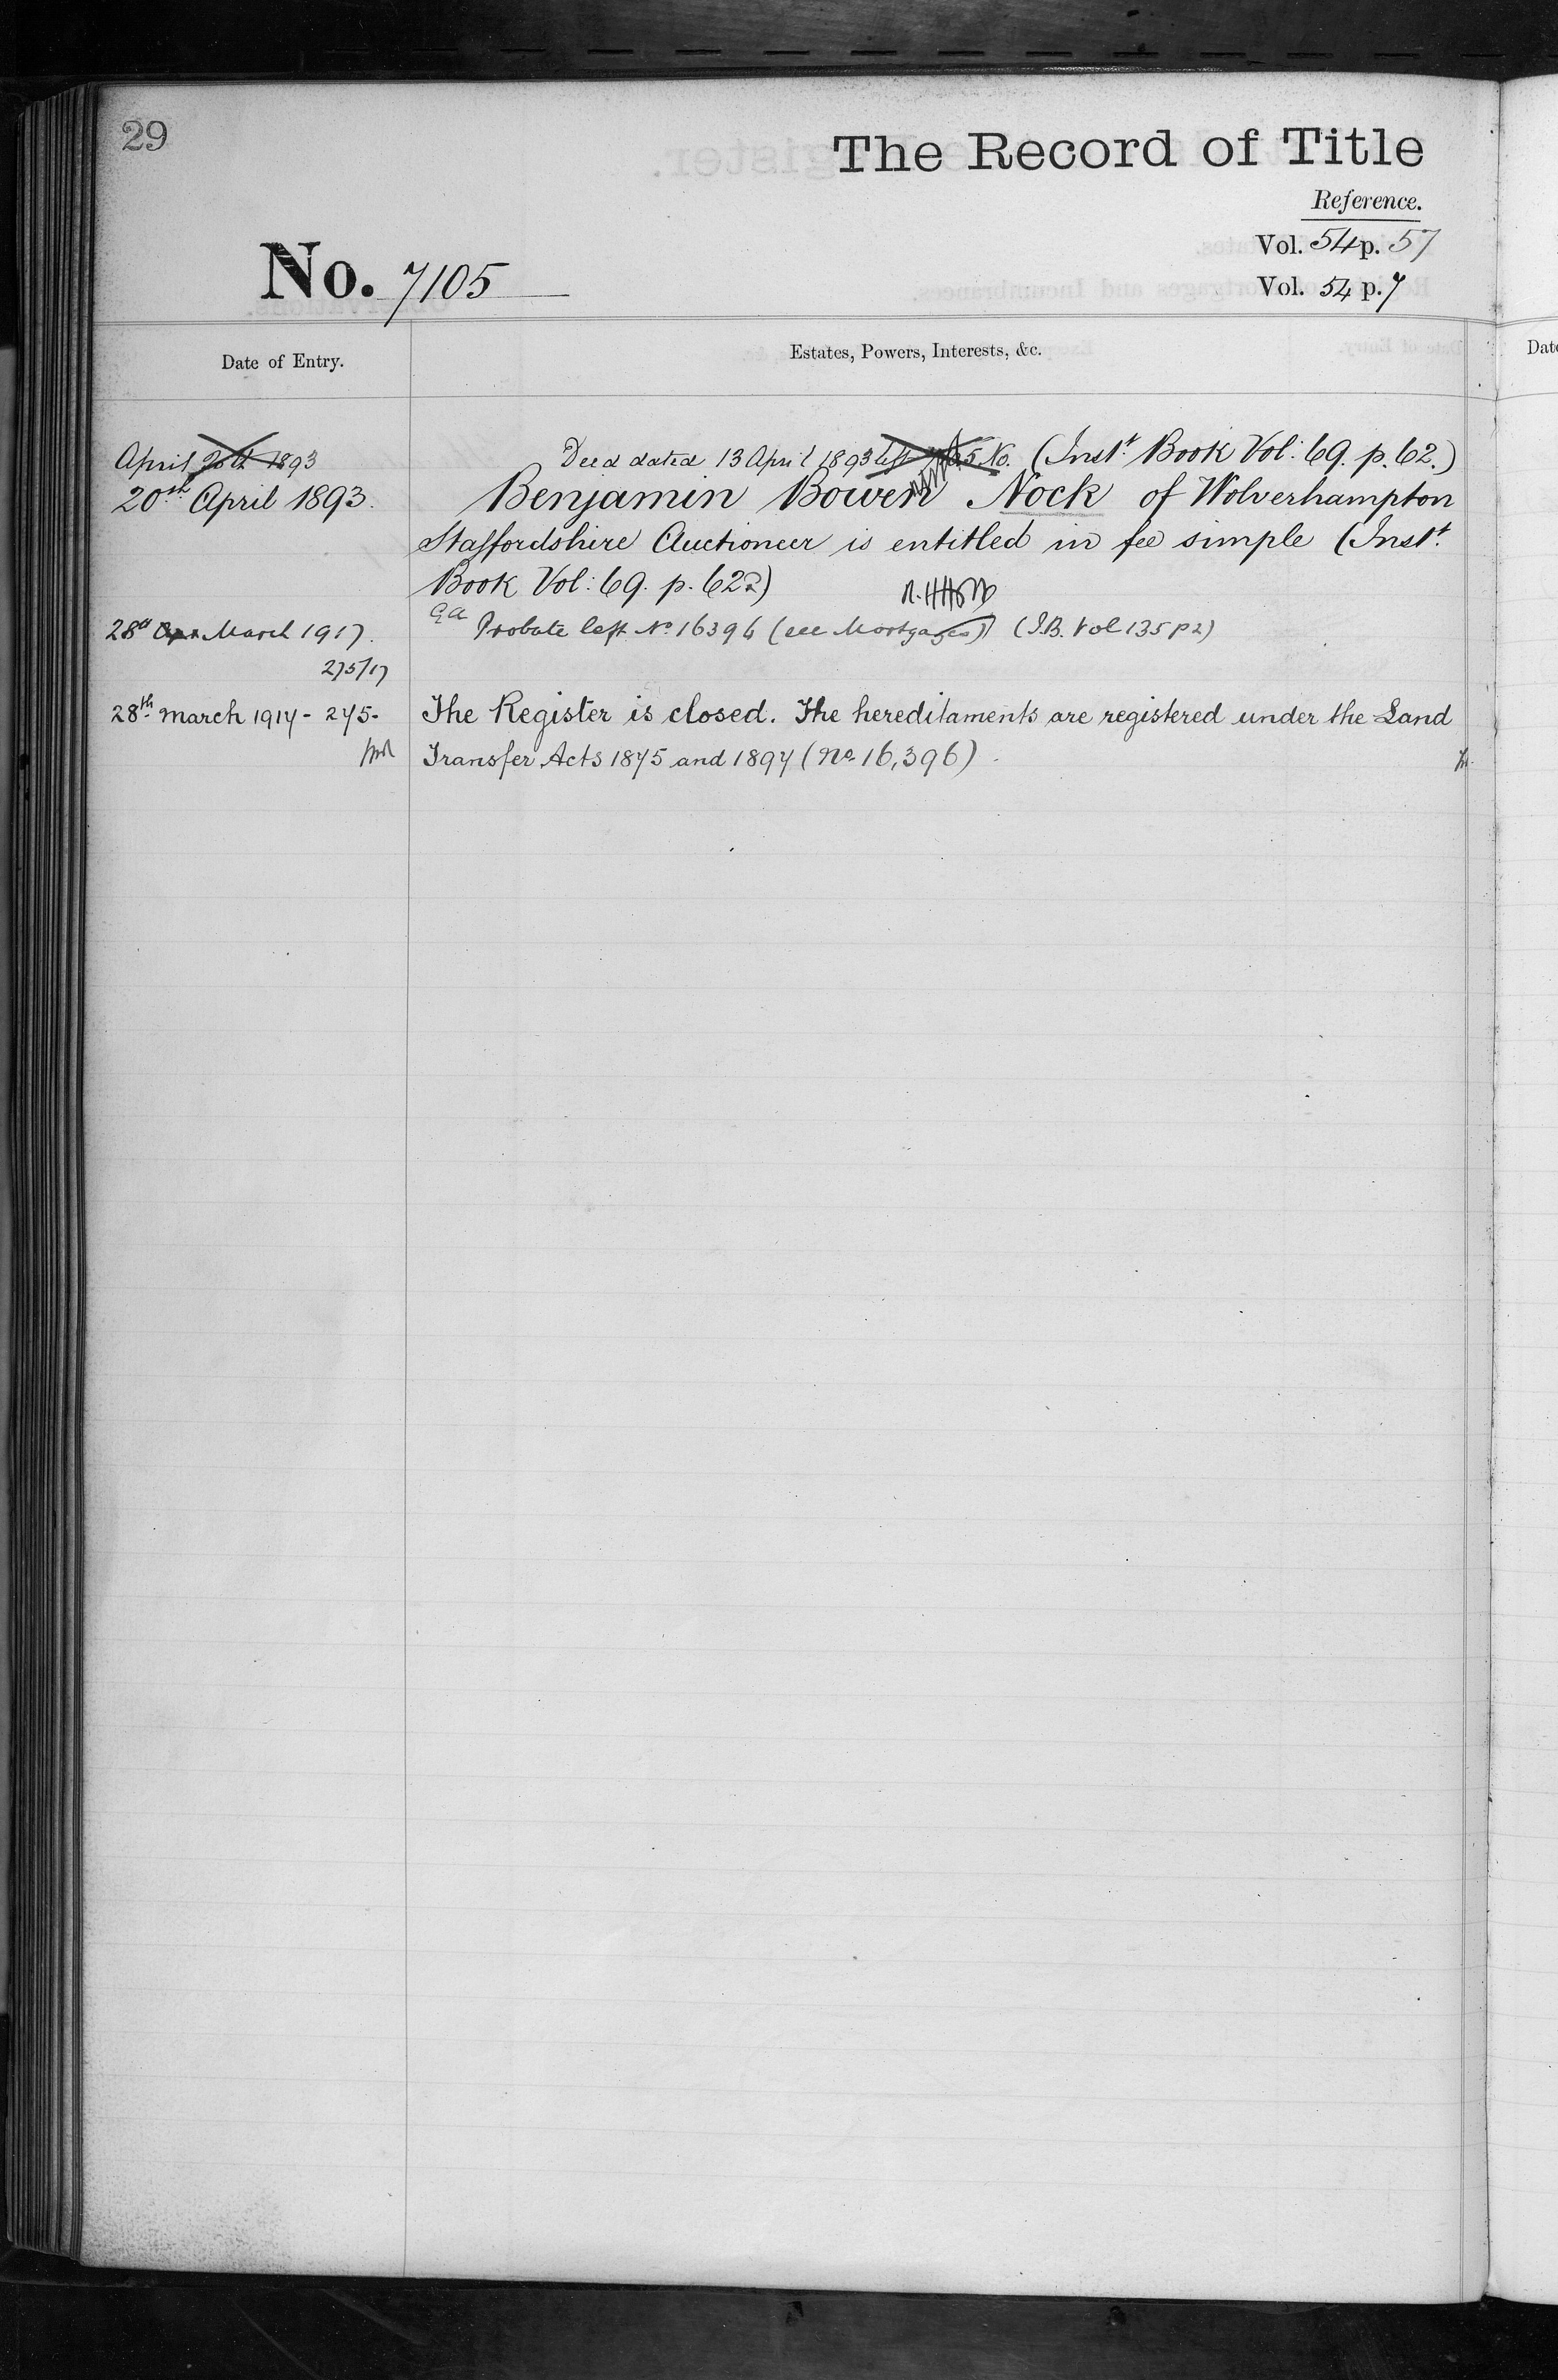 29
The Record of Title
Reference.
Vol. 54 p. 57
No. 7105
Vol. 54 p. 7
Date of Entry.
Estates, Powers, Interests, &c.
Date
April 20th 1893
Deed dated 13 April 1893 left (Instt. Book Vol: 69. p. 62.)
20th April 1893.
Benjamin Bowen Nock of Wolverhampton
Staffordshire Auctioneer is entitled in fee simple (Instt.
Book Vol: 69. p. 622)
28th March 1917.
Probate left No 16396 (see Mortgages) (I.B. Vol 135 p 2)
275/17
28th March 1917 - 275-
The Register is closed. The hereditaments are registered under the Land
Transfer Acts 1875 and 1897 (No. 16,396)